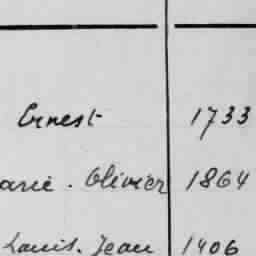 Ernest 1733
arie. Olivier 1864
Louis. Jean 1406